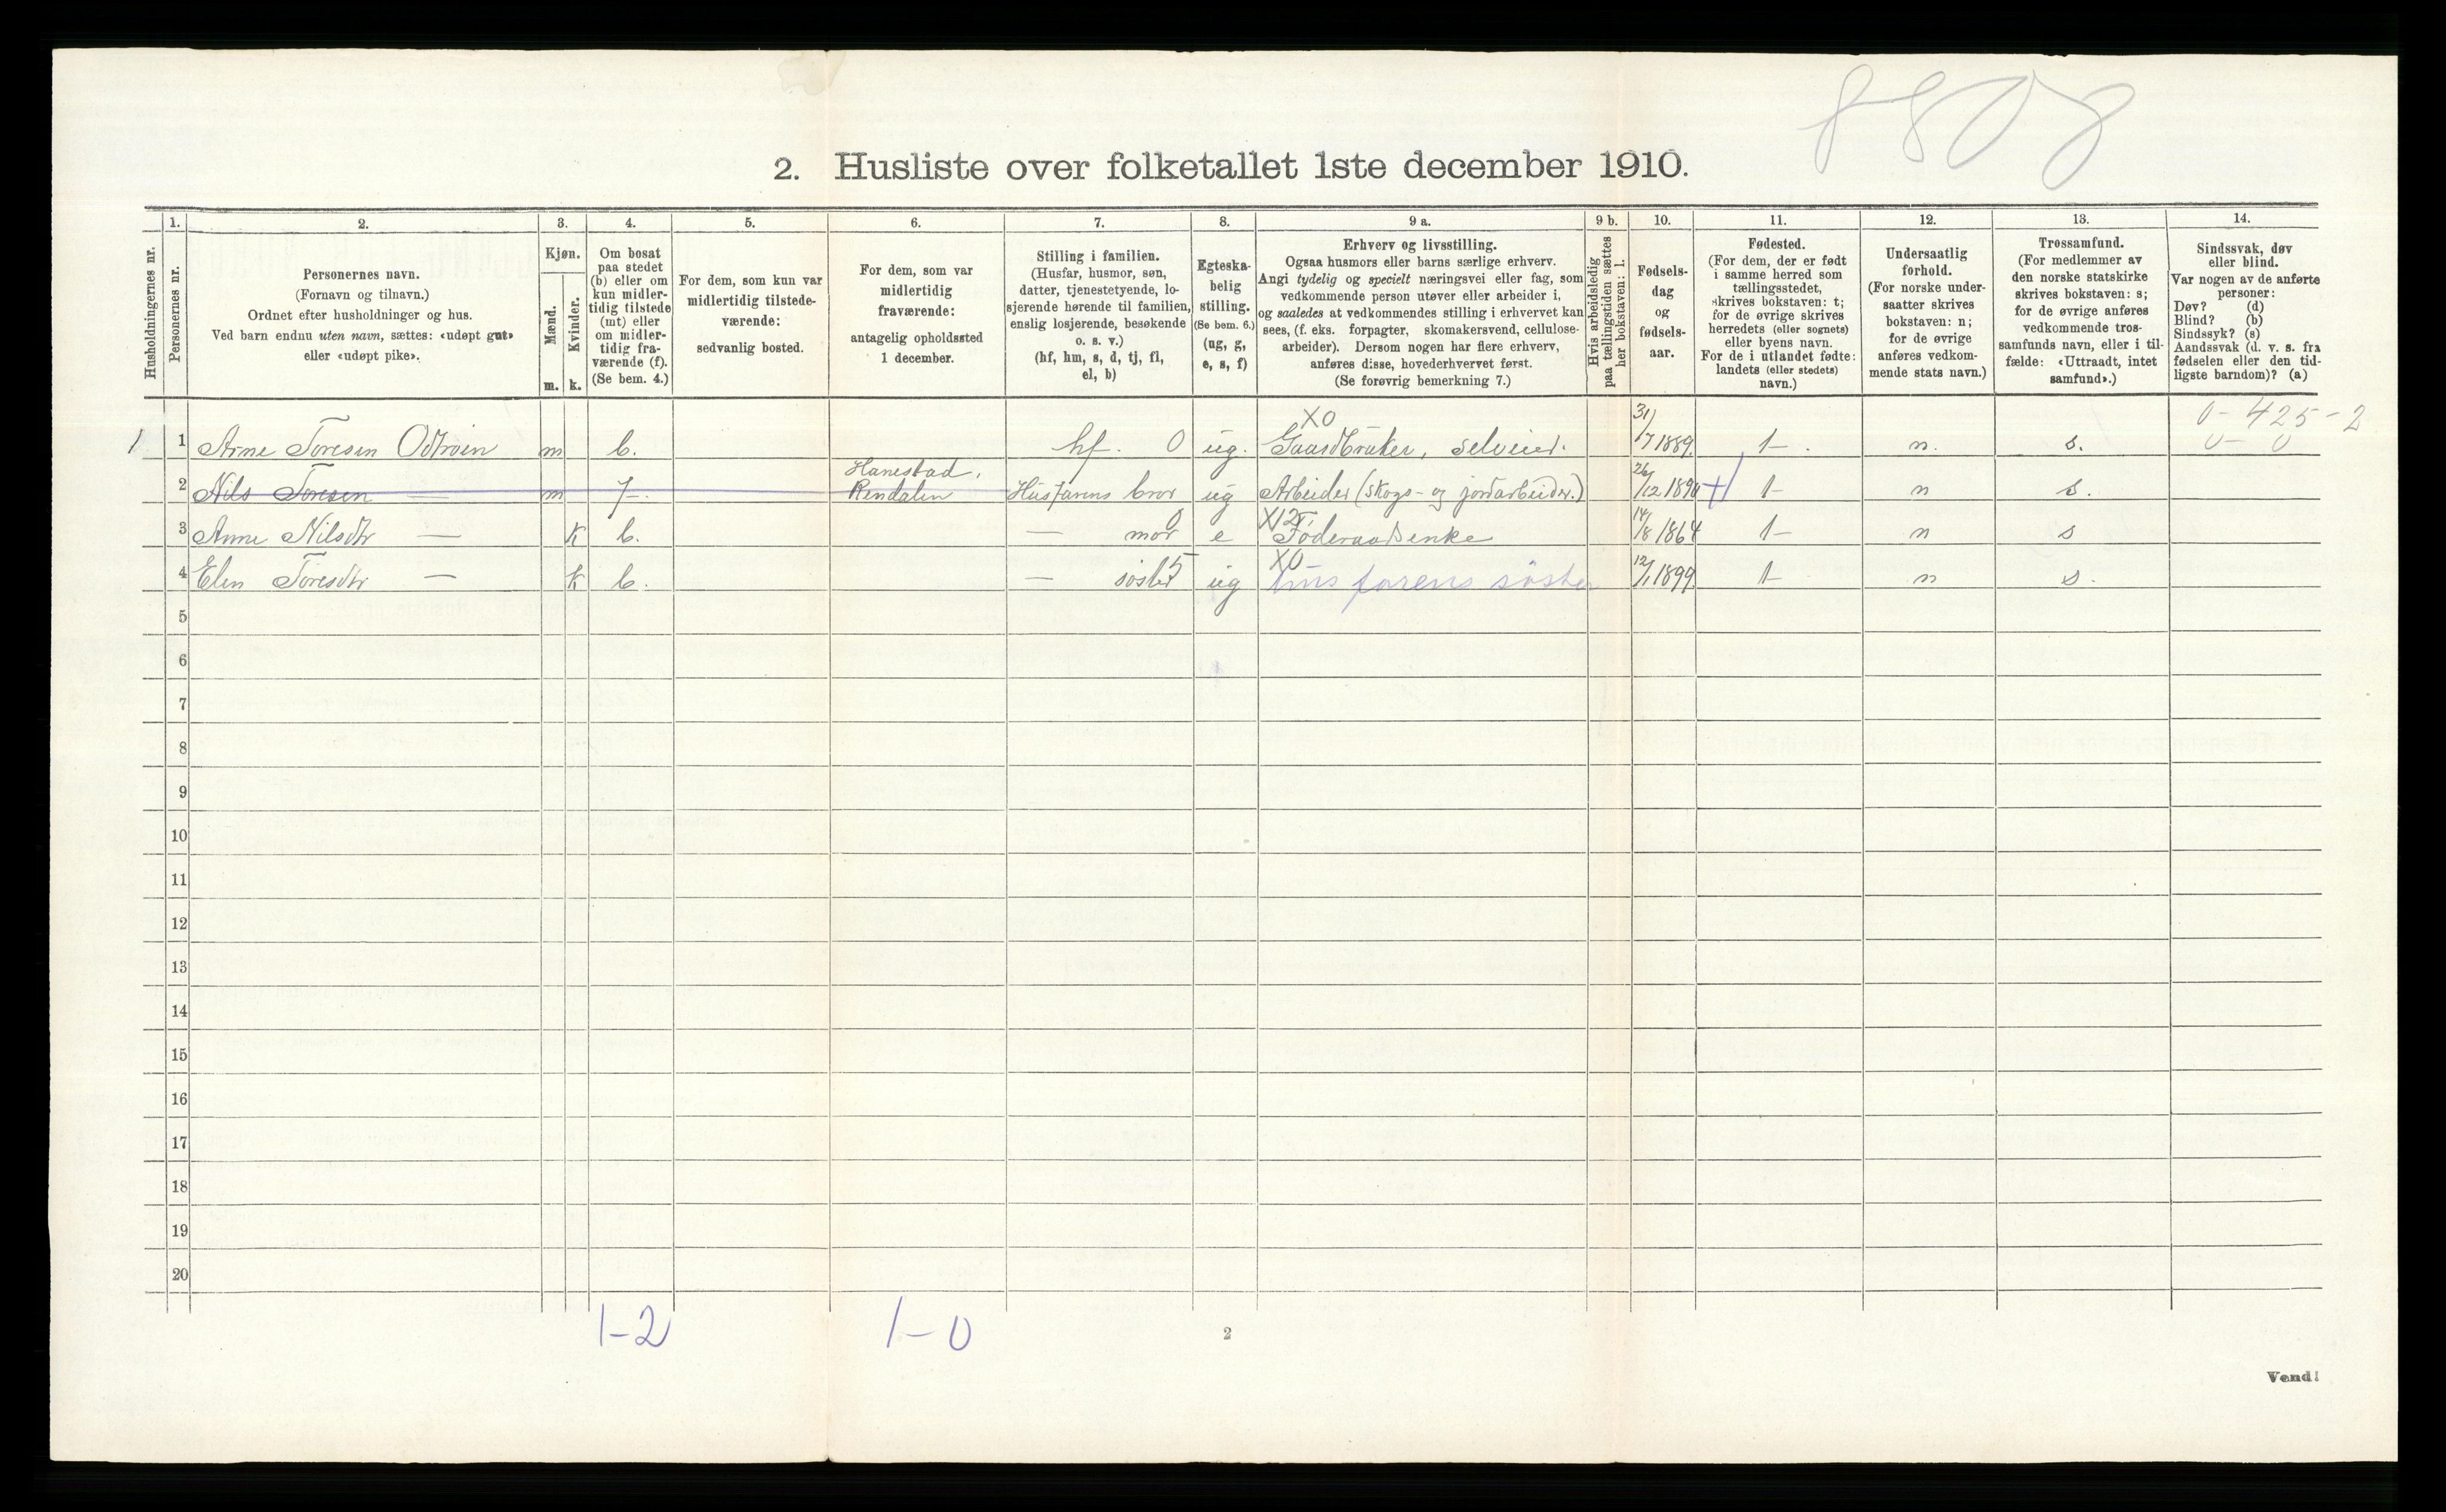 8808
2. Husliste over folketallet 1ste december 1910.
Husholdningernes nr.
1.
Personernes nr.
2.
Personernes navn.
(Fornavn og tilnavn.)
Ordnet efter husholdninger og hus.
Ved barn endnu uten navn, sættes: «udøpt gut»
eller «udøpt pike».
3.
Kjøn.
Mænd.
m.
Kvinder.
k.
4.
Om bosat
paa stedet
(b) eller om
kun midler-
tidig tilstede
(mt) eller
om midler-
tidig fra-
værende (f).
(Se bem. 4.)
5.
For dem, som kun var
midlertidig tilstede-
værende:
sedvanlig bosted.
6.
For dem, som var
midlertidig
fraværende:
antagelig opholdssted
1 december.
7.
Stilling i familien.
(Husfar, husmor, søn,
datter, tjenestetyende, lo-
sjerende hørende til familien,
enslig losjerende, besøkende
o. s. v.)
(hf, hm, s, d, tj, fl,
el, b)
8.
Egteska-
belig
stilling.
(Se bem. 6.)
(ug, g,
e, s, f)
9 a.
Erhverv og livsstilling.
Ogsaa husmors eller barns særlige erhverv.
Angi tydelig og specielt næringsvei eller fag, som
vedkommende person utøver eller arbeider i,
og saaledes at vedkommendes stilling i erhvervet kan
sees, (f. eks. forpagter, skomakersvend, cellulose-
arbeider). Dersom nogen har flere erhverv,
anføres disse, hovederhvervet først.
(Se forøvrig bemerkning 7.)
9 b.
Hvis arbeidsledig
paa tællingstiden sættes
her bokstaven: l.
10.
Fødsels-
dag
og
fødsels-
aar.
11.
Fødested.
(For dem, der er født
i samme herred som
tællingsstedet,
skrives bokstaven: t;
for de øvrige skrives
herredets (eller sognets)
eller byens navn.
For de i utlandet fødte:
landets (eller stedets)
navn.)
12.
Undersaatlig
forhold.
(For norske under-
saatter skrives
bokstaven: n;
for de øvrige
anføres vedkom-
mende stats navn.)
13.
Trossamfund.
(For medlemmer av
den norske statskirke
skrives bokstaven: s;
for de øvrige anføres
vedkommende tros-
samfunds navn, eller i til-
fælde: «Uttraadt, intet
samfund».)
14.
Sindssvak, døv
eller blind.
Var nogen av de anførte
personer:
Døv? (d)
Blind? (b)
Sindssyk? (s)
Aandssvak (d. v. s. fra
fødselen eller den tid-
ligste barndom)? (a)
0-425-2
1 1 Arne Toresen Odtröen m b. hf. 0 ug. XO Gaardbruker, selveier. 31/7 1889. t. n. s. 0-0
2 Nils Toresen — m f. Hanestad, Rendalen Husfarens bror ug Arbeider (skogs- og jordarbeider.) 26/12 1890 + t n s.
3 Anne Nilsdtr — k b. — mor 0 e X12 Føderaadsenke 14/8 1864 t n s
4 Elen Toresdtr — k b. — søster 5 ug XO husfarens søster 12/1 1899. t n s.
5
6
7
8
9
10
11
12
13
14
15
16
17
18
19
20
1-2 1-0
2
Vend!